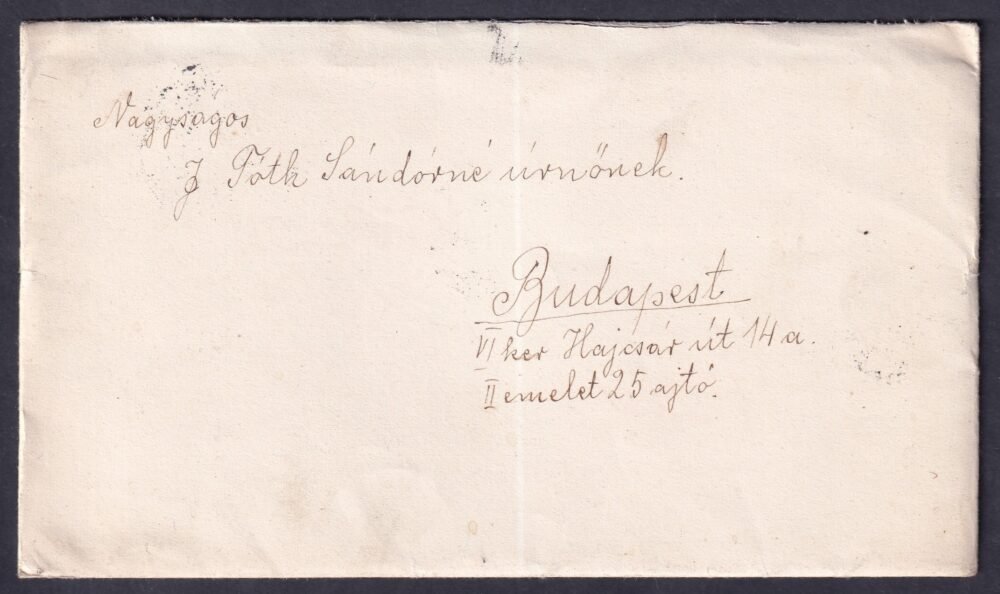 Nagyságos
J Tóth Sándórné úrnőnek.
Budapest
VI ker Hajcsár út 14 a.
II emelet 25 ajtó.